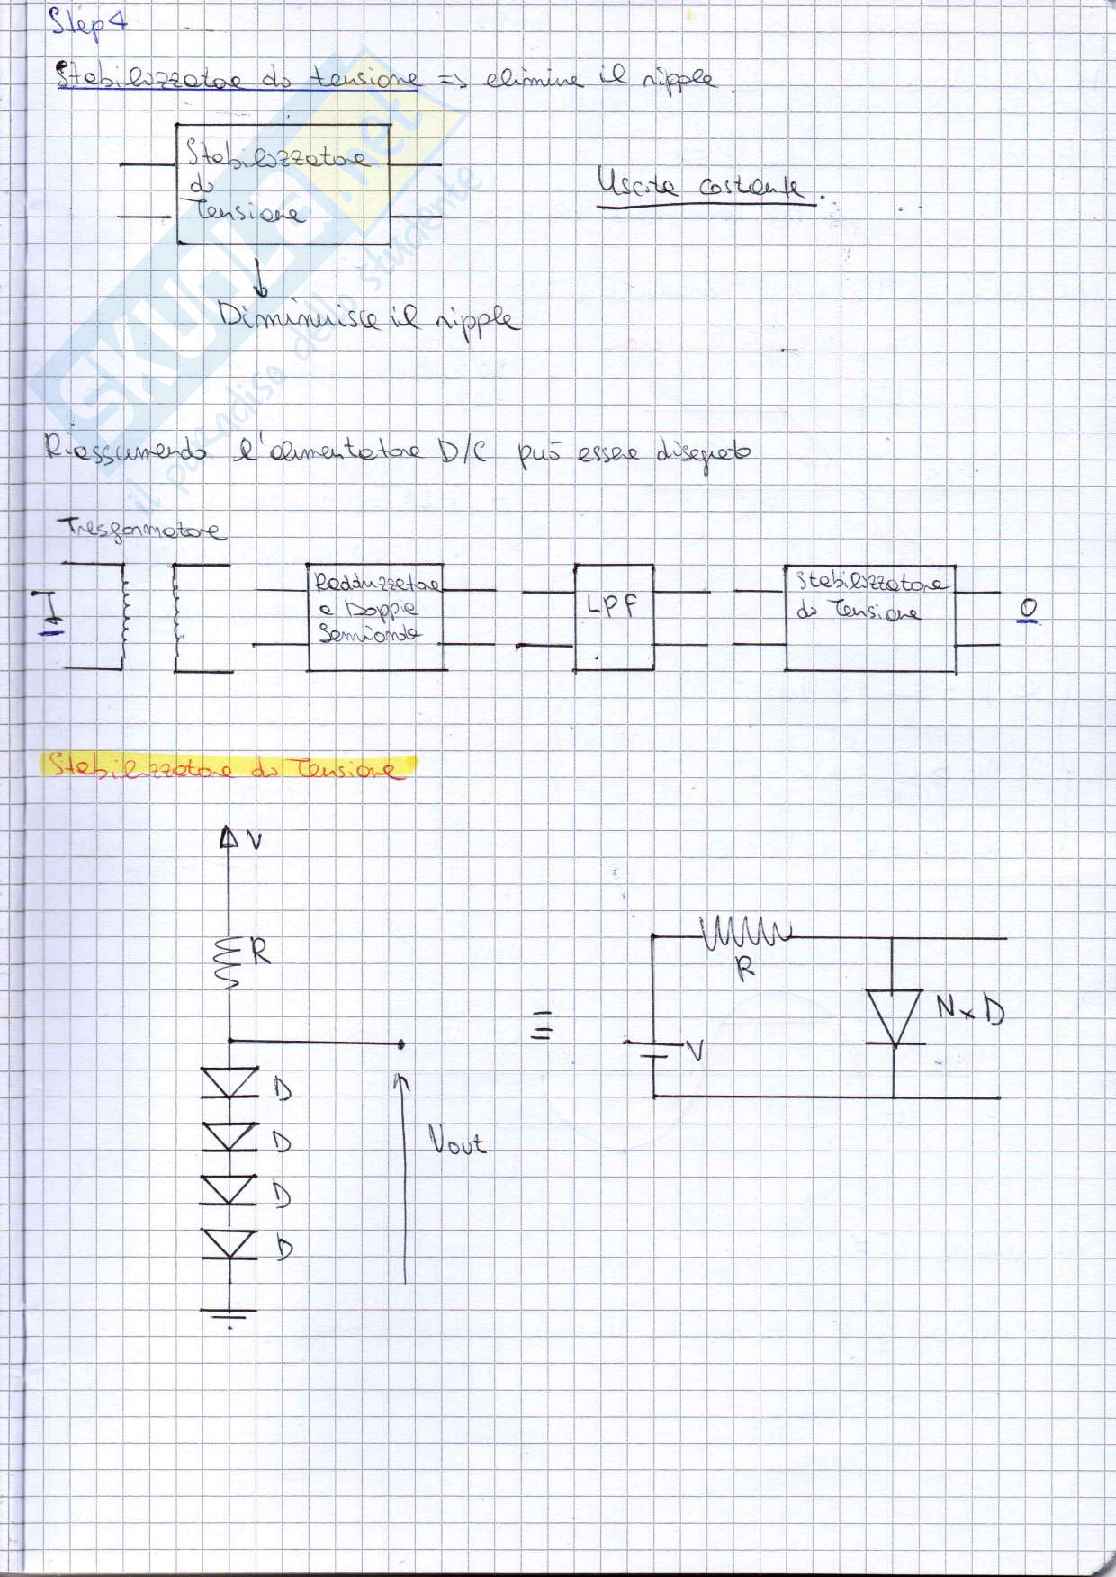 Step 4
Stabilizzatore di tensione => elimina il ripple
Stabilizzatore
di
Tensione
Uscita costante.
Diminuisce il ripple
SKUOLA.net
il paradiso dello studente
Riassumendo l'alimentatore D/C può essere disegnato
Trasformatore
I
Raddrizzatore
a Doppia
Semionda
LPF
Stabilizzatore
di Tensione
O
Stabilizzatore di Tensione
V
R
D
D
D
D
Vout
≡
R
V
N x D